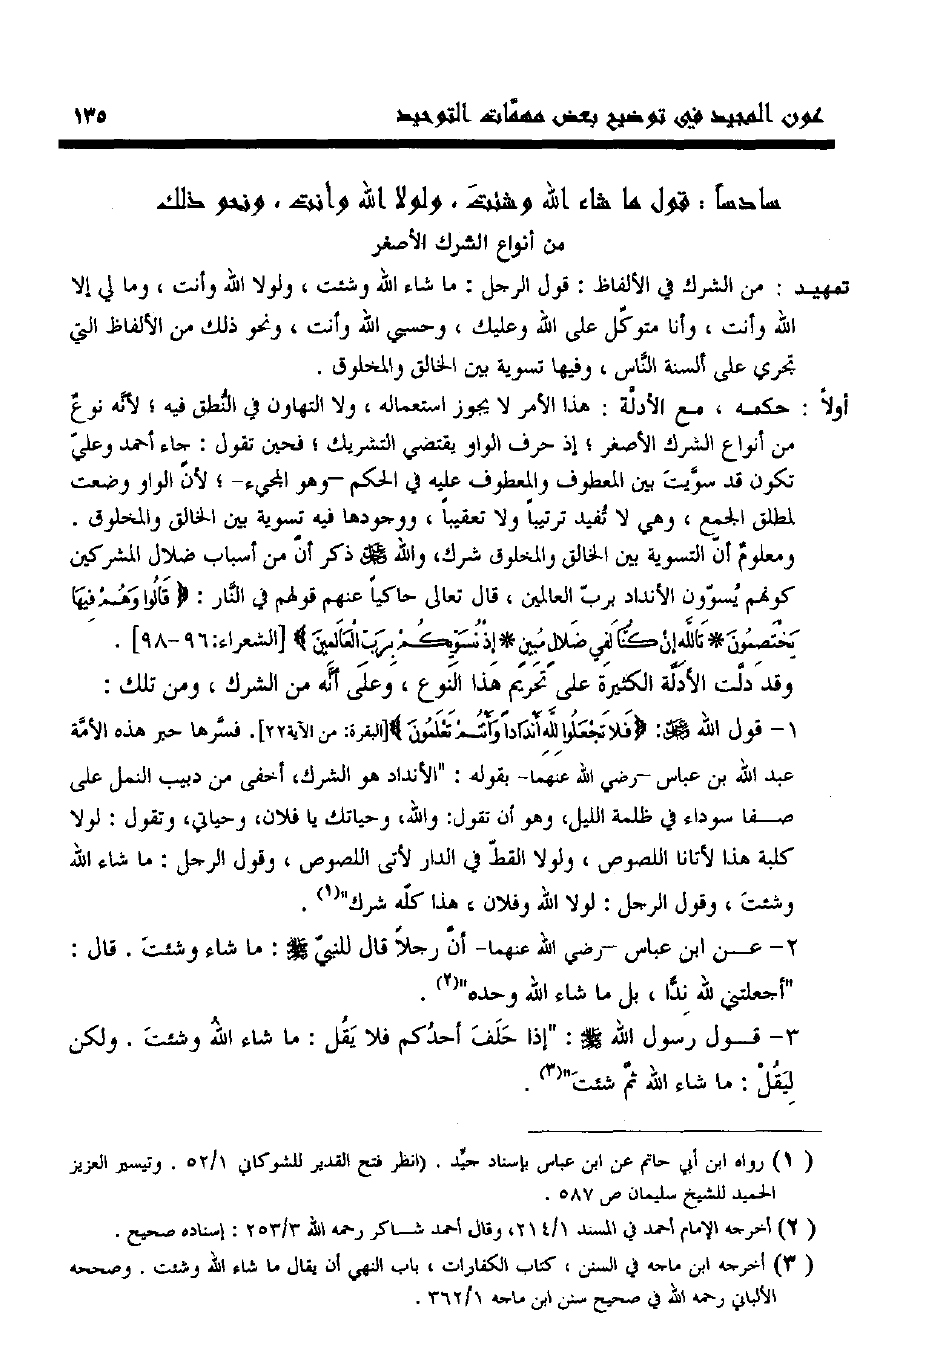 عون المجيد في توضيح بعض مهمَّات التوحيد ١٣٥
سادساً : قول ما شاء الله وشئتَ ، ولولا الله وأنت ، ونحو ذلك
من أنواع الشرك الأصغر
تمهيد : من الشرك في الألفاظ : قول الرجل : ما شاء الله وشئت ، ولولا الله وأنت ، وما لي إلا
الله وأنت ، وأنا متوكّل على الله وعليك ، وحسبي الله وأنت ، ونحو ذلك من الألفاظ التي
تجري على ألسنة النَّاس ، وفيها تسوية بين الخالق والمخلوق .
أولاً : حكمه ، مع الأدلَّة : هذا الأمر لا يجوز استعماله ، ولا التهاون في النُّطق فيه ؛ لأنَّه نوعٌ
من أنواع الشرك الأصغر ؛ إذ حرف الواو يقتضي التشريك ؛ فحين تقول : جاء أحمد وعليّ
تكون قد سوَّيتَ بين المعطوف والمعطوف عليه في الحكم –وهو المجيء– ؛ لأنّ الواو وضعت
لمطلق الجمع ، وهي لا تُفيد ترتيباً ولا تعقيباً ، ووجودها فيه تسوية بين الخالق والمخلوق .
ومعلومٌ أنّ التسوية بين الخالق والمخلوق شرك، والله ﷻ ذكر أنّ من أسباب ضلال المشركين
كونهم يُسوّون الأنداد بربّ العالمين ، قال تعالى حاكياً عنهم قولهم في النَّار : ﴿ قَالُوا وَهُمْ فِيهَا
يَخْتَصِمُونَ * تَاللَّهِ إِنْ كُنَّا لَفِي ضَلالٍ مُبِينٍ * إِذْ نُسَوِّيكُمْ بِرَبِّ الْعَالَمِينَ ﴾ [الشعراء:٩٦–٩٨] .
وقد دلَّت الأدلَّة الكثيرة على تحريم هذا النّوع ، وعلى أنَّه من الشرك ، ومن تلك :
١– قول الله ﷻ: ﴿فَلا تَجْعَلُوا لِلَّهِ أَنْدَاداً وَأَنْتُمْ تَعْلَمُونَ ﴾[البقرة: من الآية٢٢]. فسَّرها حبر هذه الأمَّة
عبد الله بن عباس –رضي الله عنهما– بقوله : "الأنداد هو الشرك، أخفى من دبيب النمل على
صفا سوداء في ظلمة الليل، وهو أن تقول: والله، وحياتك يا فلان، وحياتي، وتقول : لولا
كلبة هذا لأتانا اللصوص ، ولولا القطّ في الدار لأتى اللصوص ، وقول الرجل : ما شاء الله
وشئتَ ، وقول الرجل : لولا الله وفلان ، هذا كلّه شرك"(١) .
٢– عن ابن عباس –رضي الله عنهما– أنّ رجلاً قال للنبيّ ﷺ : ما شاء وشئتَ . قال :
"أجعلتني لله نِدًّا ، بل ما شاء الله وحده"(٢) .
٣– قول رسول الله ﷺ : "إذا حَلَفَ أحدُكم فلا يَقُل : ما شاء اللهُ وشئتَ . ولكن
لِيَقُلْ : ما شاء الله ثمَّ شئتَ"(٣) .
( ١) رواه ابن أبي حاتم عن ابن عباس بإسناد جيِّد . (انظر فتح القدير للشوكاني ٥٢/١ . وتيسير العزيز
الحميد للشيخ سليمان ص ٥٨٧ .
( ٢) أخرجه الإمام أحمد في المسند ٢١٤/١، وقال أحمد شاكر رحمه الله ٢٥٣/٣ : إسناده صحيح .
( ٣) أخرجه ابن ماجه في السنن ، كتاب الكفارات ، باب النهي أن يقال ما شاء الله وشئت . وصححه
الألباني رحمه الله في صحيح سنن ابن ماجه ٣٦٢/١ .